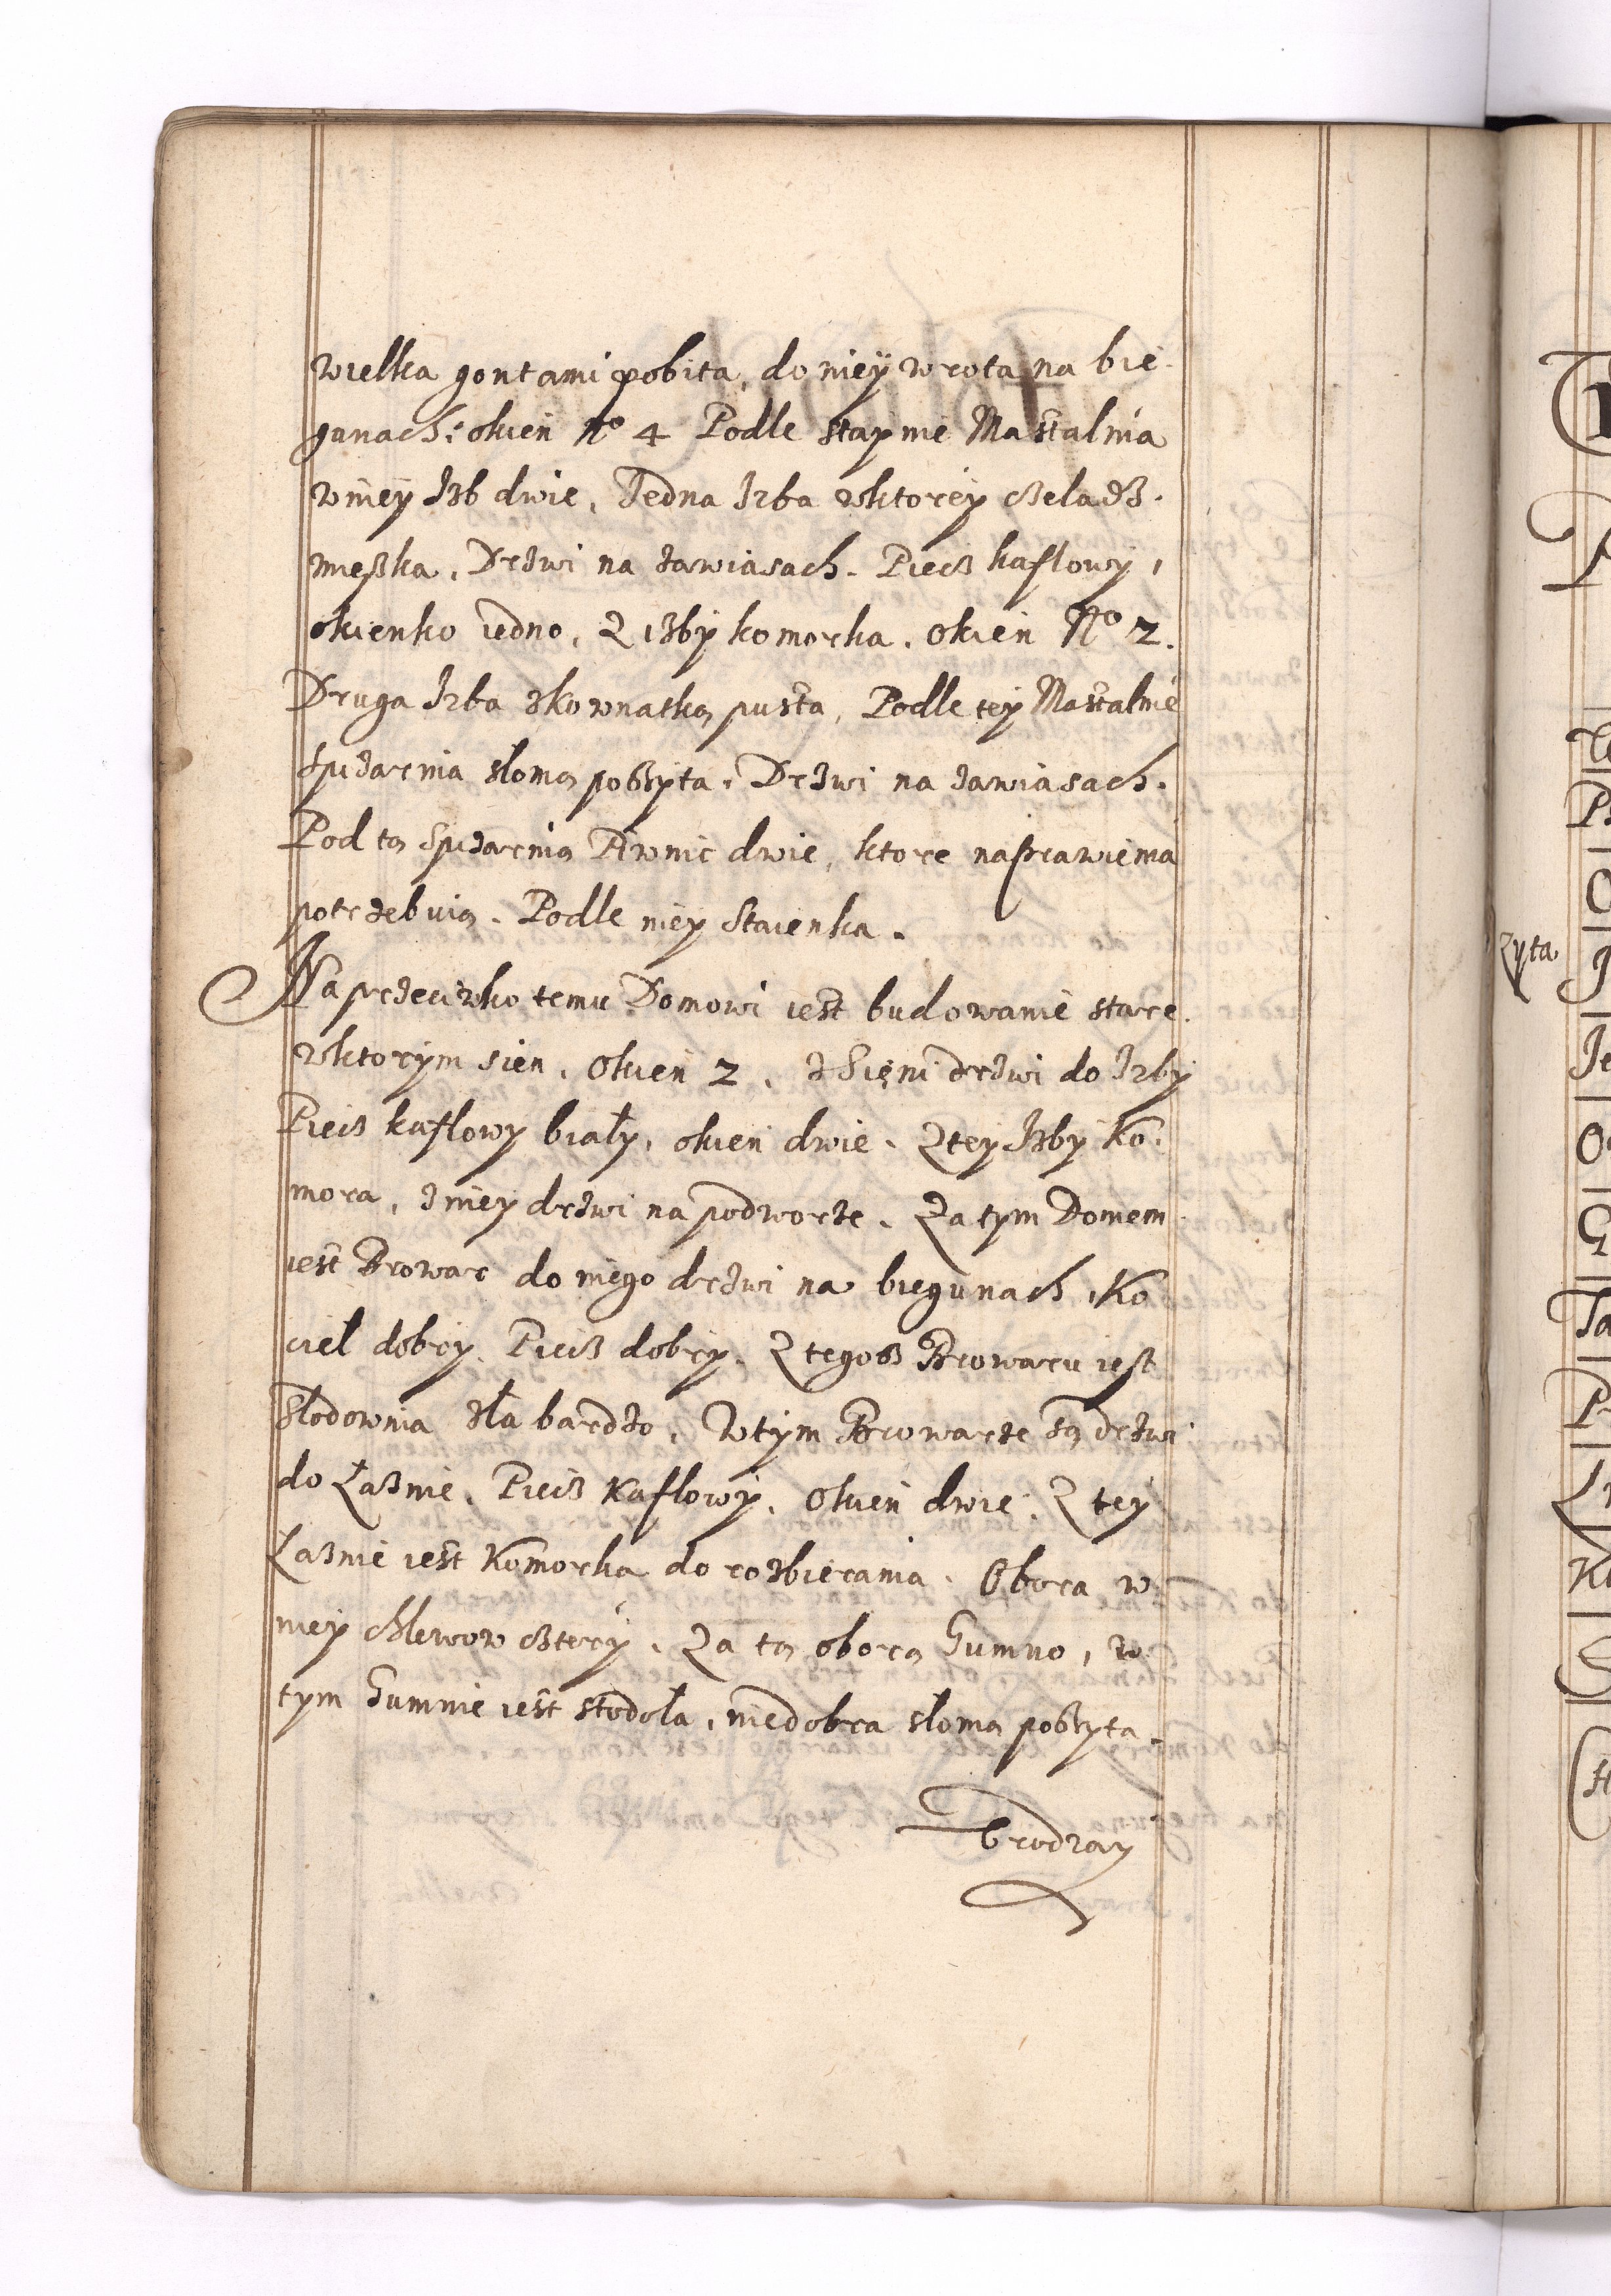 wielka gontami pobita, do niey wrota na bie-
gunach: okien No 4 Podle stajnie Mastalnia
w niey Izb dwie, Jedna Izba w ktorey czeladz
mießka, Drzwi na zawiasach. Piecz kaflowy,
okienko iedno, Z izby komorka, okien No 2.
Druga Izba z kownatką pusta, Podle tey Mastalnie
Spizarnia słomą poszyta, Drzwi na zawiasach.
Pod tą Spizarnią Piwnic dwie, ktore naprawienia
potrzebuią. Podle niey Staienka.
Naprzeciwko temu Domowi iest budowanie stare,
w ktorym sien, Okien 2, z Sieni drzwi do Izby
Piecz kaflowy biały, okien dwie, Z tey Izby Ko-
mora, z niey drzwi na podworze, Za tym Domem
iest Browar do niego drzwi na biegunach, Ko
cieł dobry, Piecz dobry, Z tegoß Browaru iest
Słodownia zła bardzo, W tym Browarze są drzwi
do Łaznie, Piecz Kaflowy, Okien dwie, Z tey
Łaznie iest Komorka do rozbierania, Obora w
niey chlewow cztery, Za tą oborą Gumno, w
tym Gumnie iest stodoła, niedobra słomą poszyta.
Urodzay
zyta